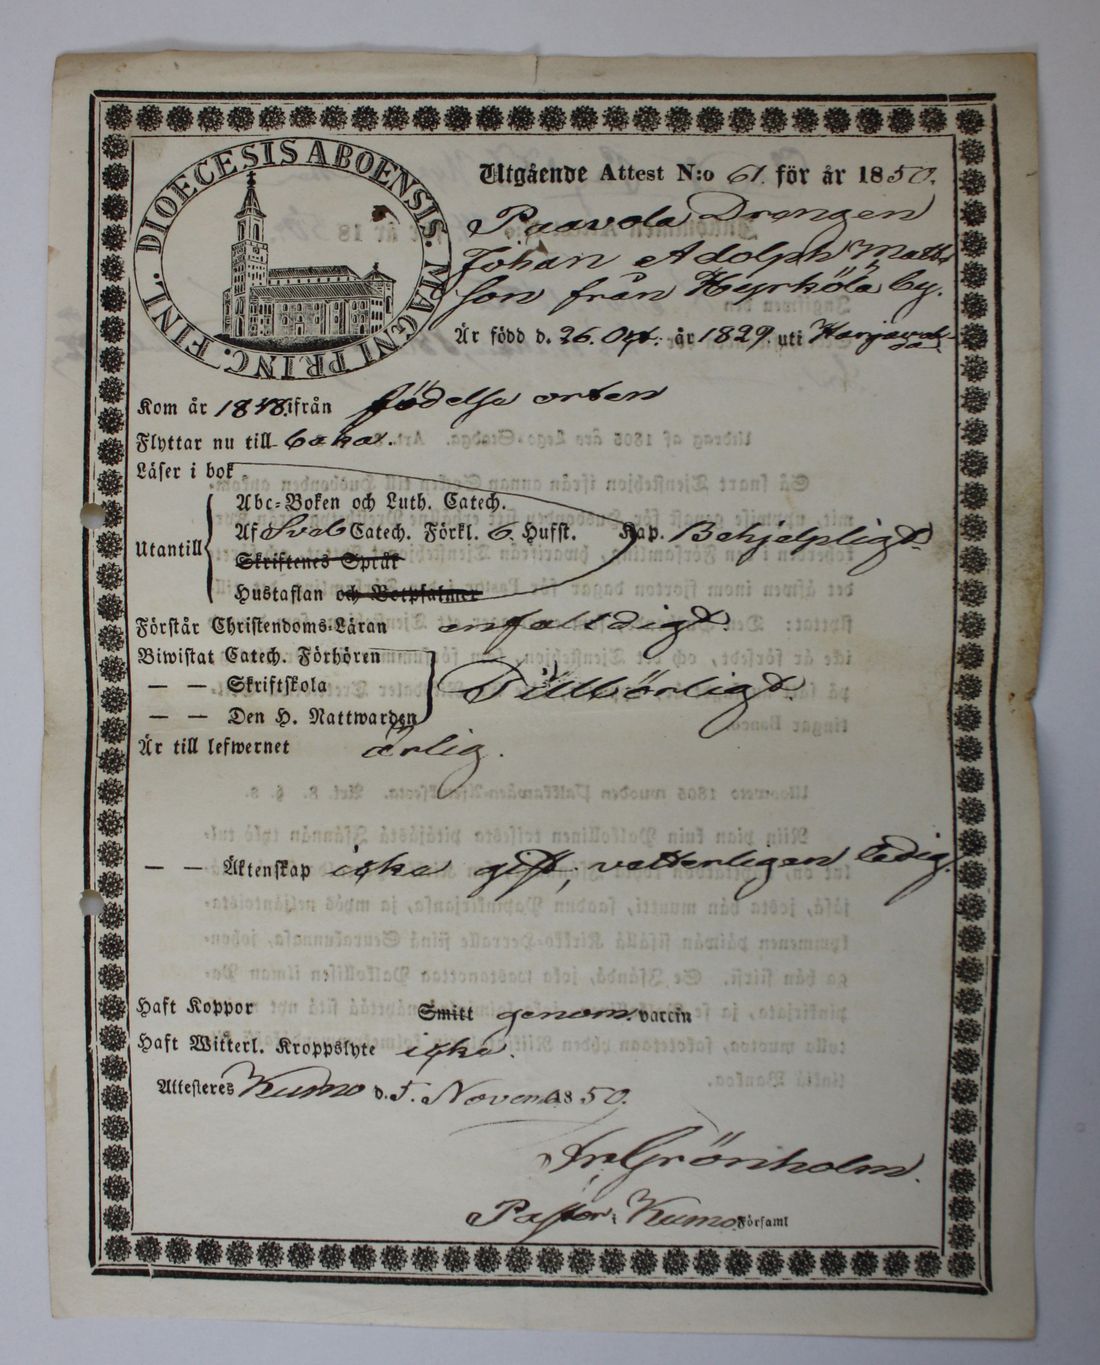 DIOECESIS ABOENSIS. MAGNI PRINC. FINL.
Utgående Attest N:o 61. för år 1850.
Paavola Drengen
Johan Adolph Matts
son från Hyrkölä by.
Är född d. 26. Oct. år 1829. uti Harjavalta
Kom år 1848. ifrån födelse orten
Flyttar nu till
Läser i bok
Abc-Boken och Luth. Catech.
Utantill Af Sveb Catech. Förkl. 6. Hufst. Kap. Behjelpligt.
Skriftenes Språk
Hustaflan och Botpsalmer
Förstår Christendoms-Läran enfaldigt.
Biwistat Catech. Förhören
— — Skriftskola Tillbörligt.
— — Den H. Nattwarden
Är till lefwernet ärlig.
— — Äktenskap icke gift, vetterligen ledig.
Haft Koppor Smitt genom vaccin
Haft Witterl. Kroppslyte icke.
Attesteres Kumo d. 5. Novemb. 1850.
Grönholm.
Pastor i Kumo Församl